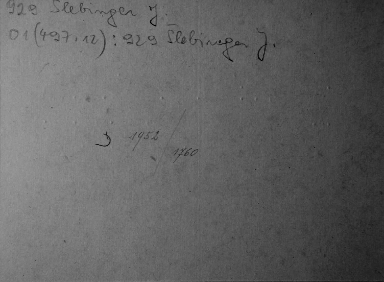 929 Šlebinger J.
01(497.12):929 Šlebinger J.
1452
1760